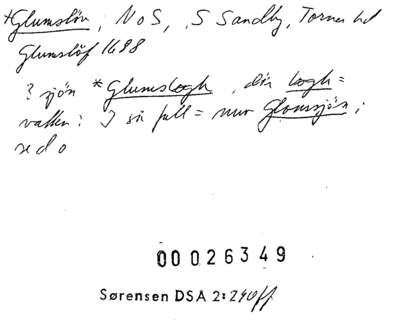 +Glumslöv, N o S, S Sandby, Torna hd
Glumslöf 1698
? sjön *Glumslogh, där logh =
vatten: I så fall = nuv Glomsjön;
se d o
00 026349
Sørensen DSA 2: 240ff